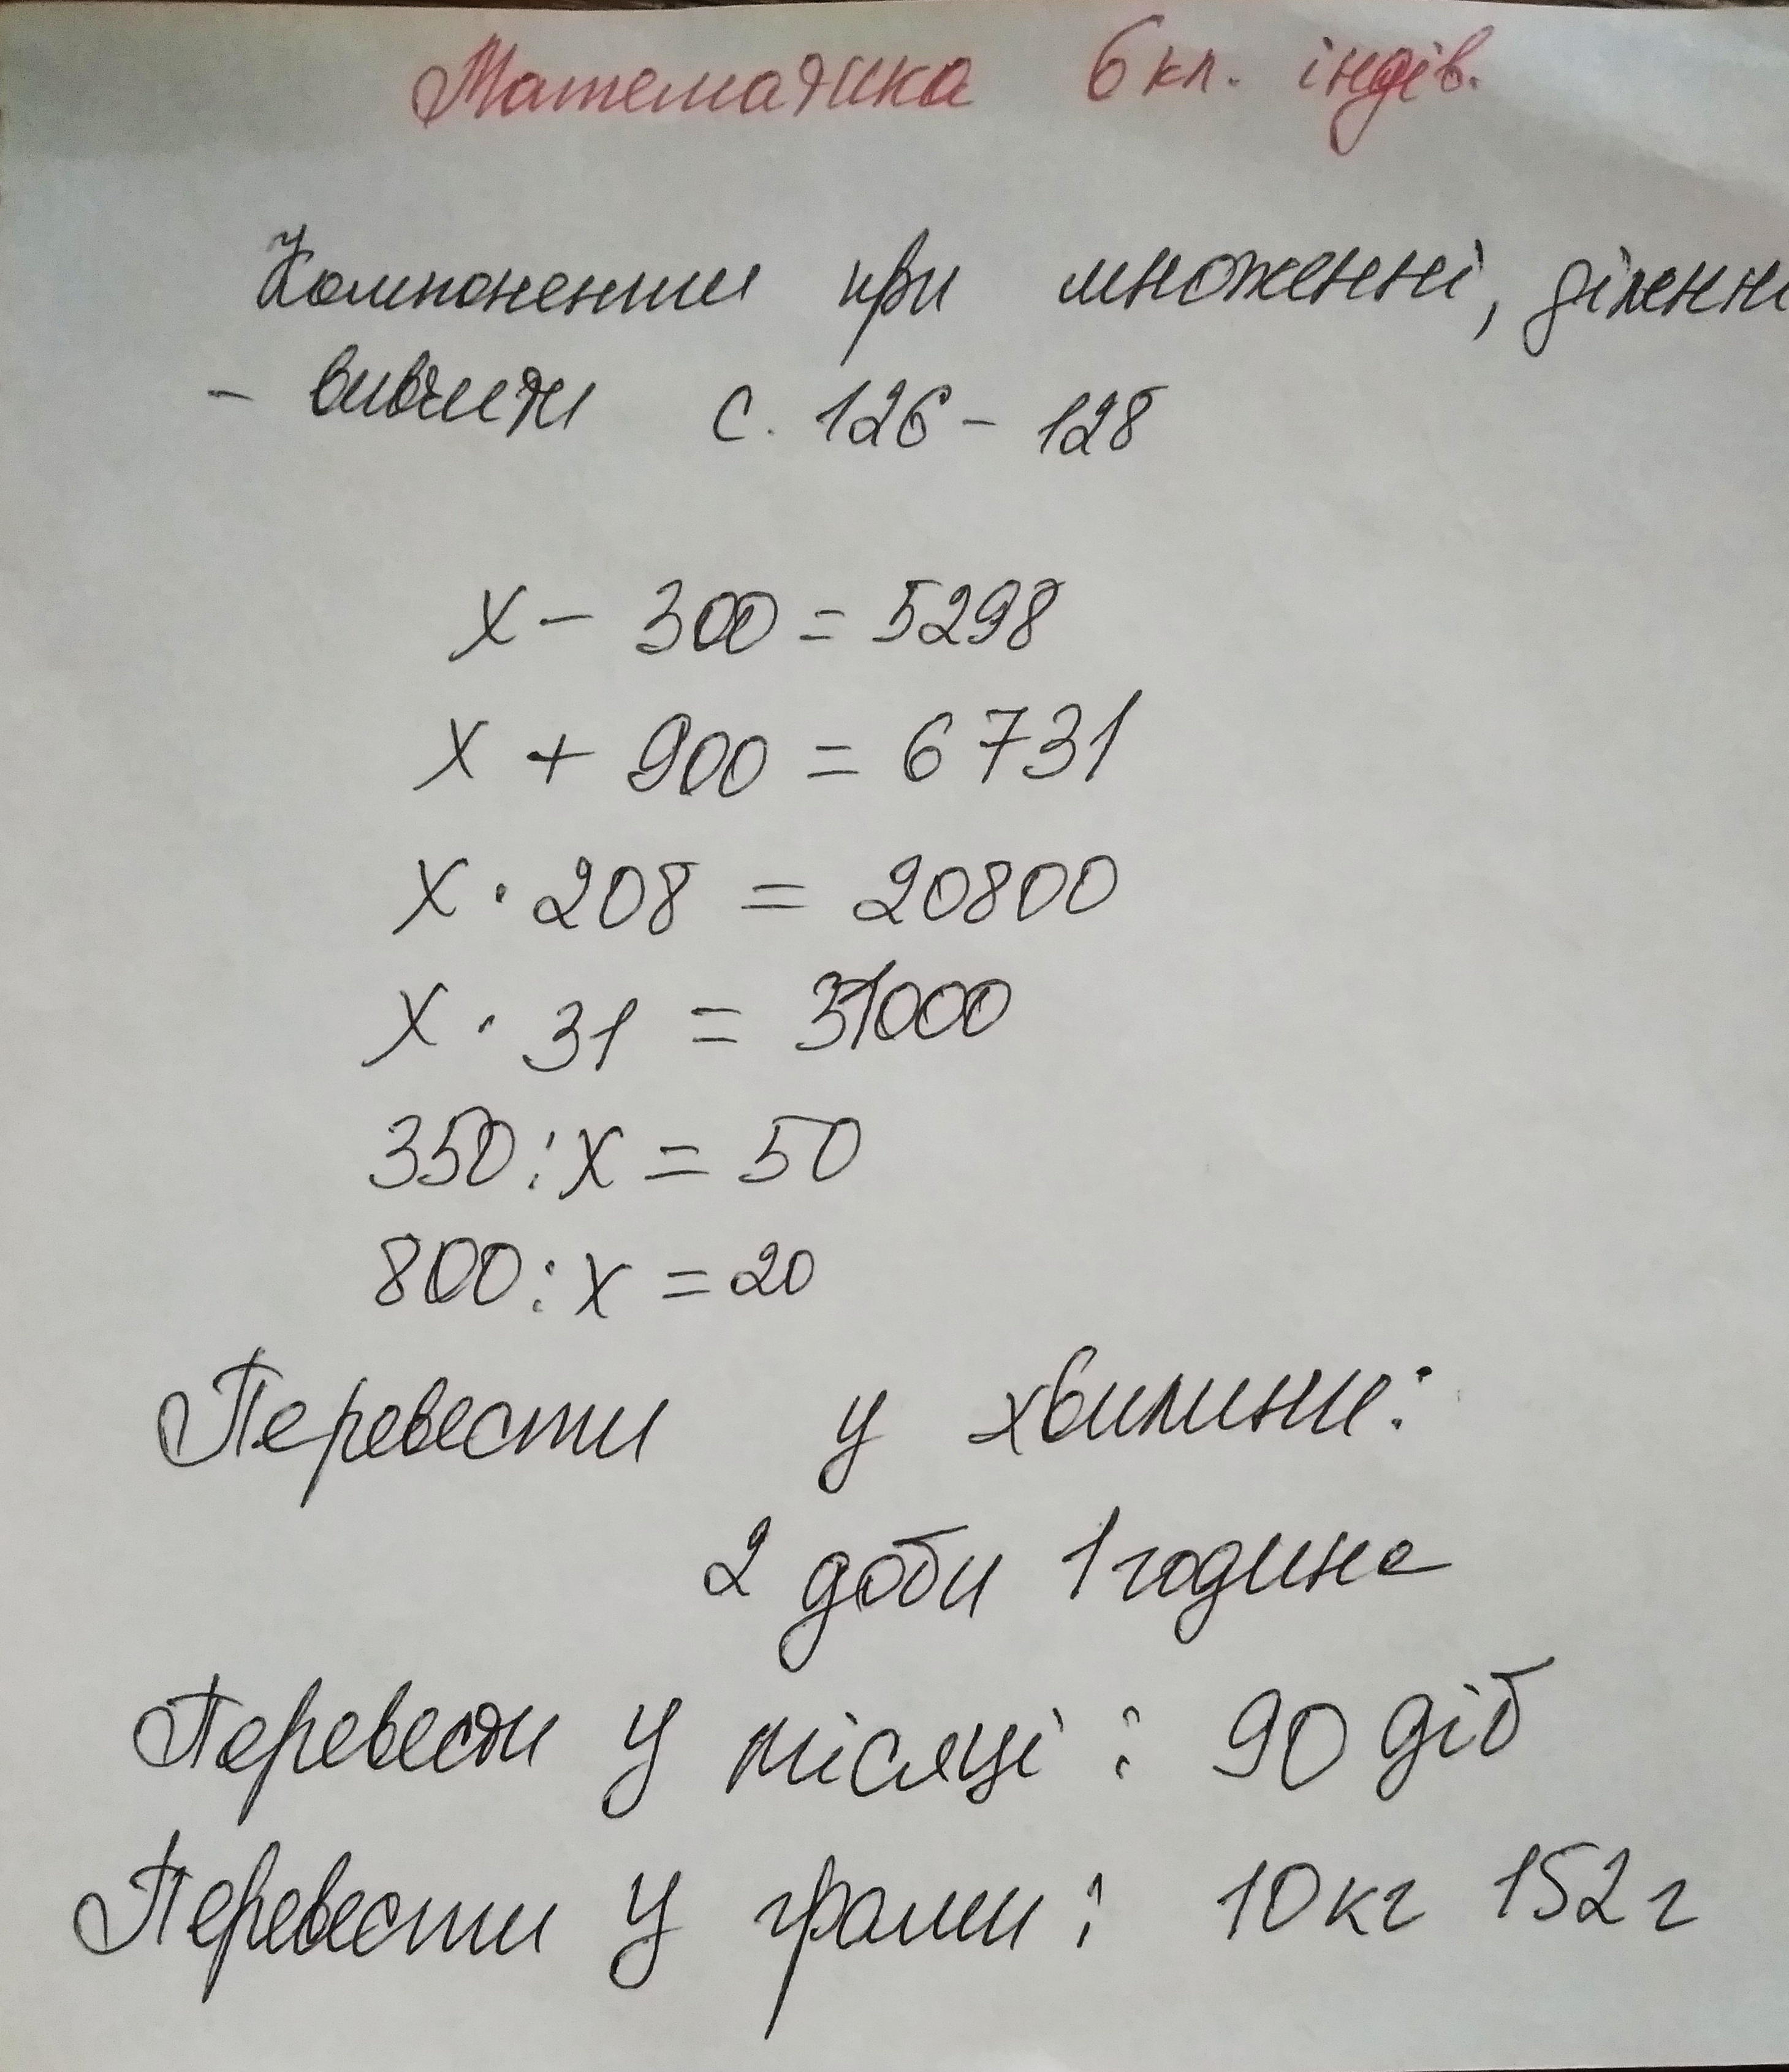 Математика 6 кл. індів.
Компоненти при множенні, діленні
- вивчити с. 126 - 128
x - 300 = 5298
x + 900 = 6731
x · 208 = 20800
x · 31 = 31000
350 : x = 50
800 : x = 20
Перевести у хвилини:
2 доби 1 година
Перевести у місяці : 90 діб
Перевести у грами : 10 кг 152 г